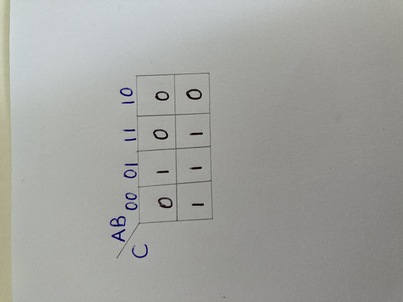 AB
C 00 01 11 10
0 1 0 0
1 1 1 0